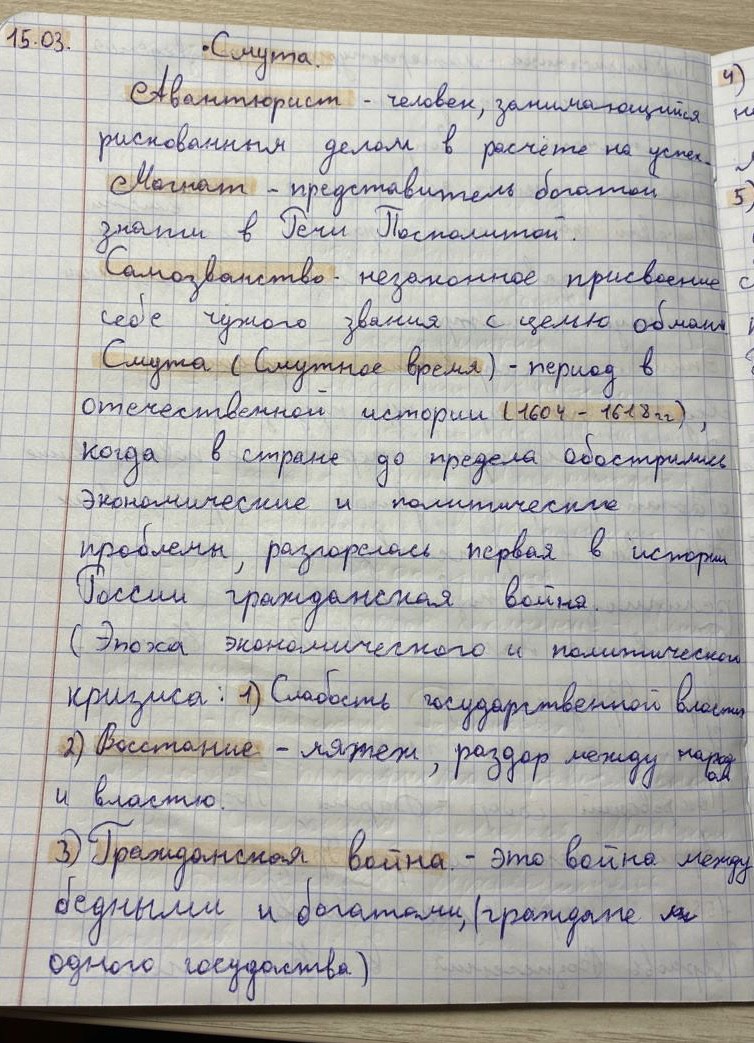 15.03.
• Смута.
Авантюрист - человек, занимающийся
рискованным делом в расчёте на успех.
Магнат - представитель богатой
знати в Речи Посполитой.
Самозванство - незаконное присвоение
себе чужого звания с целью обмана
Смута (Смутное время) - период в
отечественной истории (1604 - 1618 гг),
когда в стране до предела обострились
экономические и политические
проблемы, разгорелась первая в истории
России гражданская война.
(Эпоха экономического и политического
кризиса: 1) Слабость государственной власти
2) Восстание - мятеж, раздор между народом
и властью.
3) Гражданская война. - это война между
бедными и богатыми, (граждане
одного государства)
4)
5)